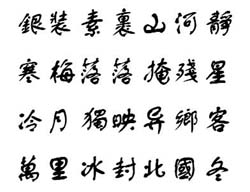 銀裝素裹山河靜
寒梅落落掩殘星
冷月獨映异鄉客
萬里冰封北國冬